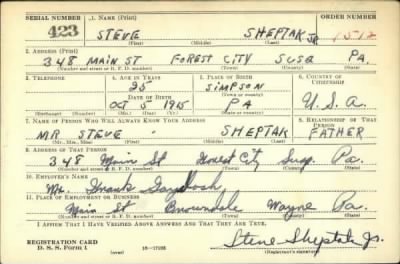 SERIAL NUMBER 1. NAME (Print) ORDER NUMBER
423 STEVE SHEPTAK JR. 1512
(First) (Middle) (Last)
2. ADDRESS (Print)
348 MAIN ST FOREST CITY SUSQ PA.
(Number and street or R. F. D. number) (Town) (County) (State)
3. TELEPHONE 4. AGE IN YEARS 5. PLACE OF BIRTH 6. COUNTRY OF CITIZENSHIP
25 SIMPSON
DATE OF BIRTH (Town or county)
OCT 5 1915 PA U.S.A.
(Exchange) (Number) (Mo.) (Day) (Yr.) (State or country)
7. NAME OF PERSON WHO WILL ALWAYS KNOW YOUR ADDRESS 8. RELATIONSHIP OF THAT PERSON
MR STEVE SHEPTAK FATHER
(Mr., Mrs., Miss) (First) (Middle) (Last)
9. ADDRESS OF THAT PERSON
348 Main St Forest City Susq. Pa.
(Number and street or R. F. D. number) (Town) (County) (State)
10. EMPLOYER'S NAME
Mr. Frank
11. PLACE OF EMPLOYMENT OR BUSINESS
Main St Browndale Wayne Pa.
(Number and street or R. F. D. number) (Town) (County) (State)
I AFFIRM THAT I HAVE VERIFIED ABOVE ANSWERS AND THAT THEY ARE TRUE.
REGISTRATION CARD
D. S. S. Form 1 (over) 16—17105 Steve Sheptak Jr.